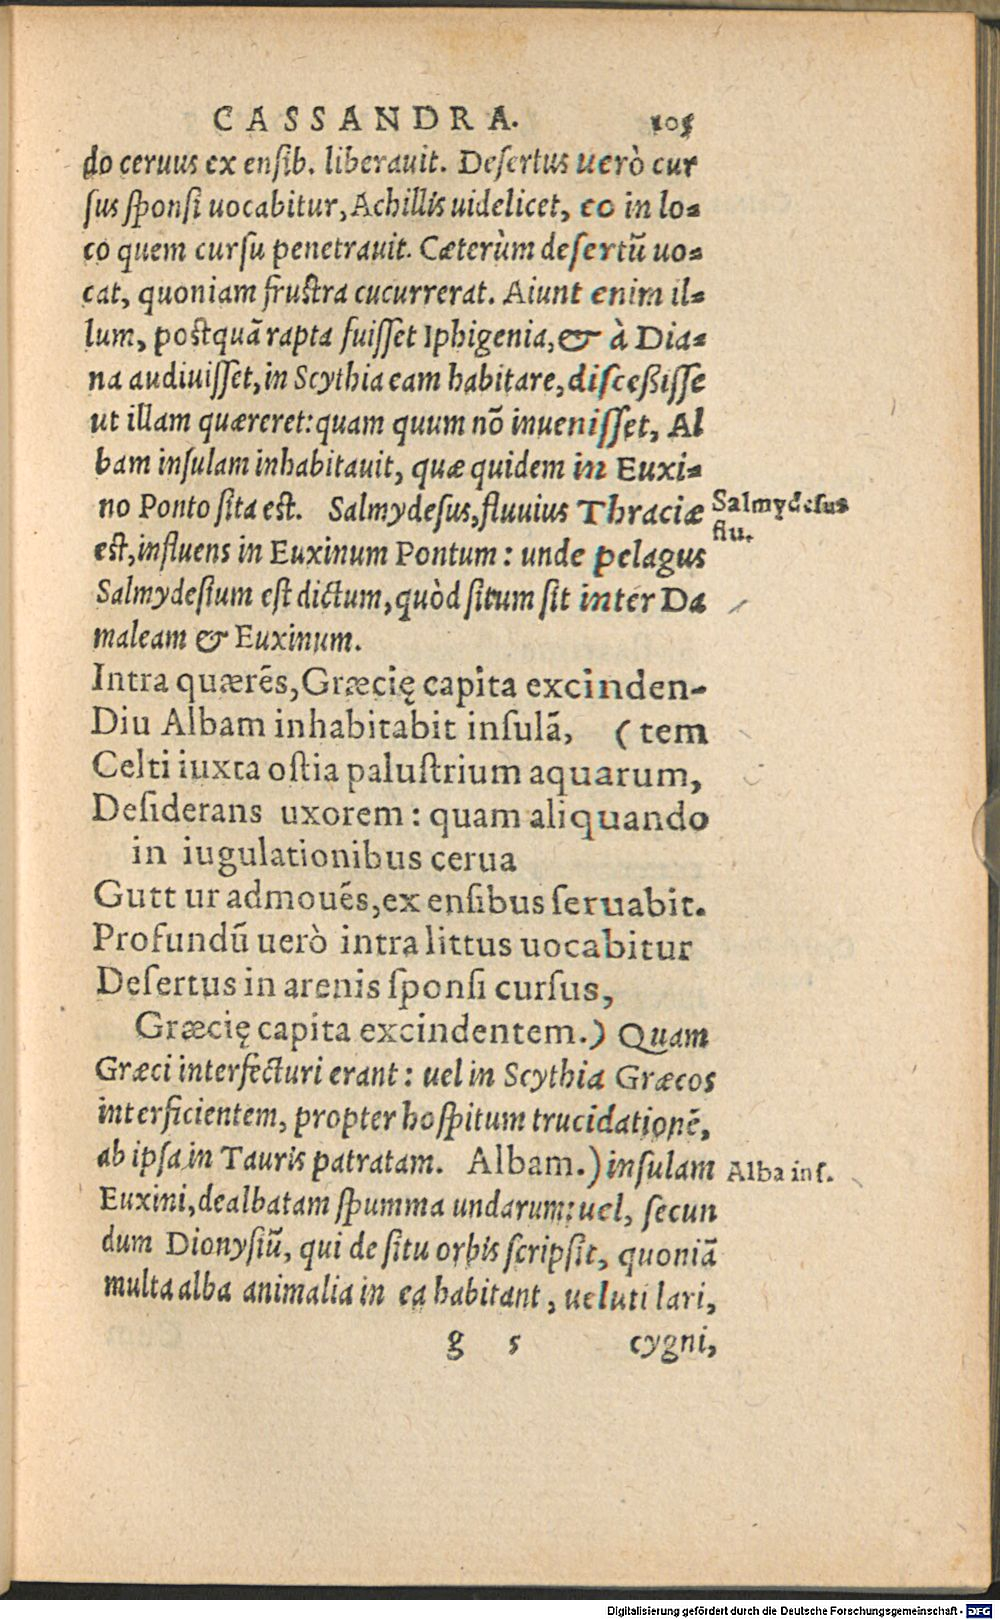 CASSANDRA. 105
do ceruus ex ensib. liberauit. Desertus uerò cur
sus sponsi uocabitur, Achillis uidelicet, eo in lo-
co quem cursu penetrauit. Cæterùm desertũ uo-
cat, quoniam frustra cucurrerat. Aiunt enim il-
lum, postquã rapta fuisset Iphigenia, & à Dia-
na audiuisset, in Scythia eam habitare, discessisse
ut illam quæreret: quam quum nõ inuenisset, Al
bam insulam inhabitauit, quæ quidem in Euxi-
no Ponto sita est. Salmydesus, fluuius Thraciæ
Salmydesus
flu.
est, influens in Euxinum Pontum: unde pelagus
Salmydesium est dictum, quòd situm sit inter Da
maleam & Euxinum.
Intra quærẽs, Græcię capita excinden-
Diu Albam inhabitabit insulã, (tem
Celti iuxta ostia palustrium aquarum,
Desiderans uxorem: quam aliquando
in iugulationibus cerua
Gutt ur admouẽs, ex ensibus seruabit.
Profundũ uerò intra littus uocabitur
Desertus in arenis sponsi cursus,
Græcię capita excindentem.) Quam
Græci interfecturi erant: uel in Scythia Græcos
interficientem, propter hospitum trucidationẽ,
ab ipsa in Tauris patratam. Albam.) insulam
Alba ins.
Euxini, dealbatam spumma undarum: uel, secun
dum Dionysiũ, qui de situ orbis scripsit, quoniã
multa alba animalia in ea habitant, ueluti lari,
g 5 cygni,
Digitalisierung gefördert durch die Deutsche Forschungsgemeinschaft - DFG